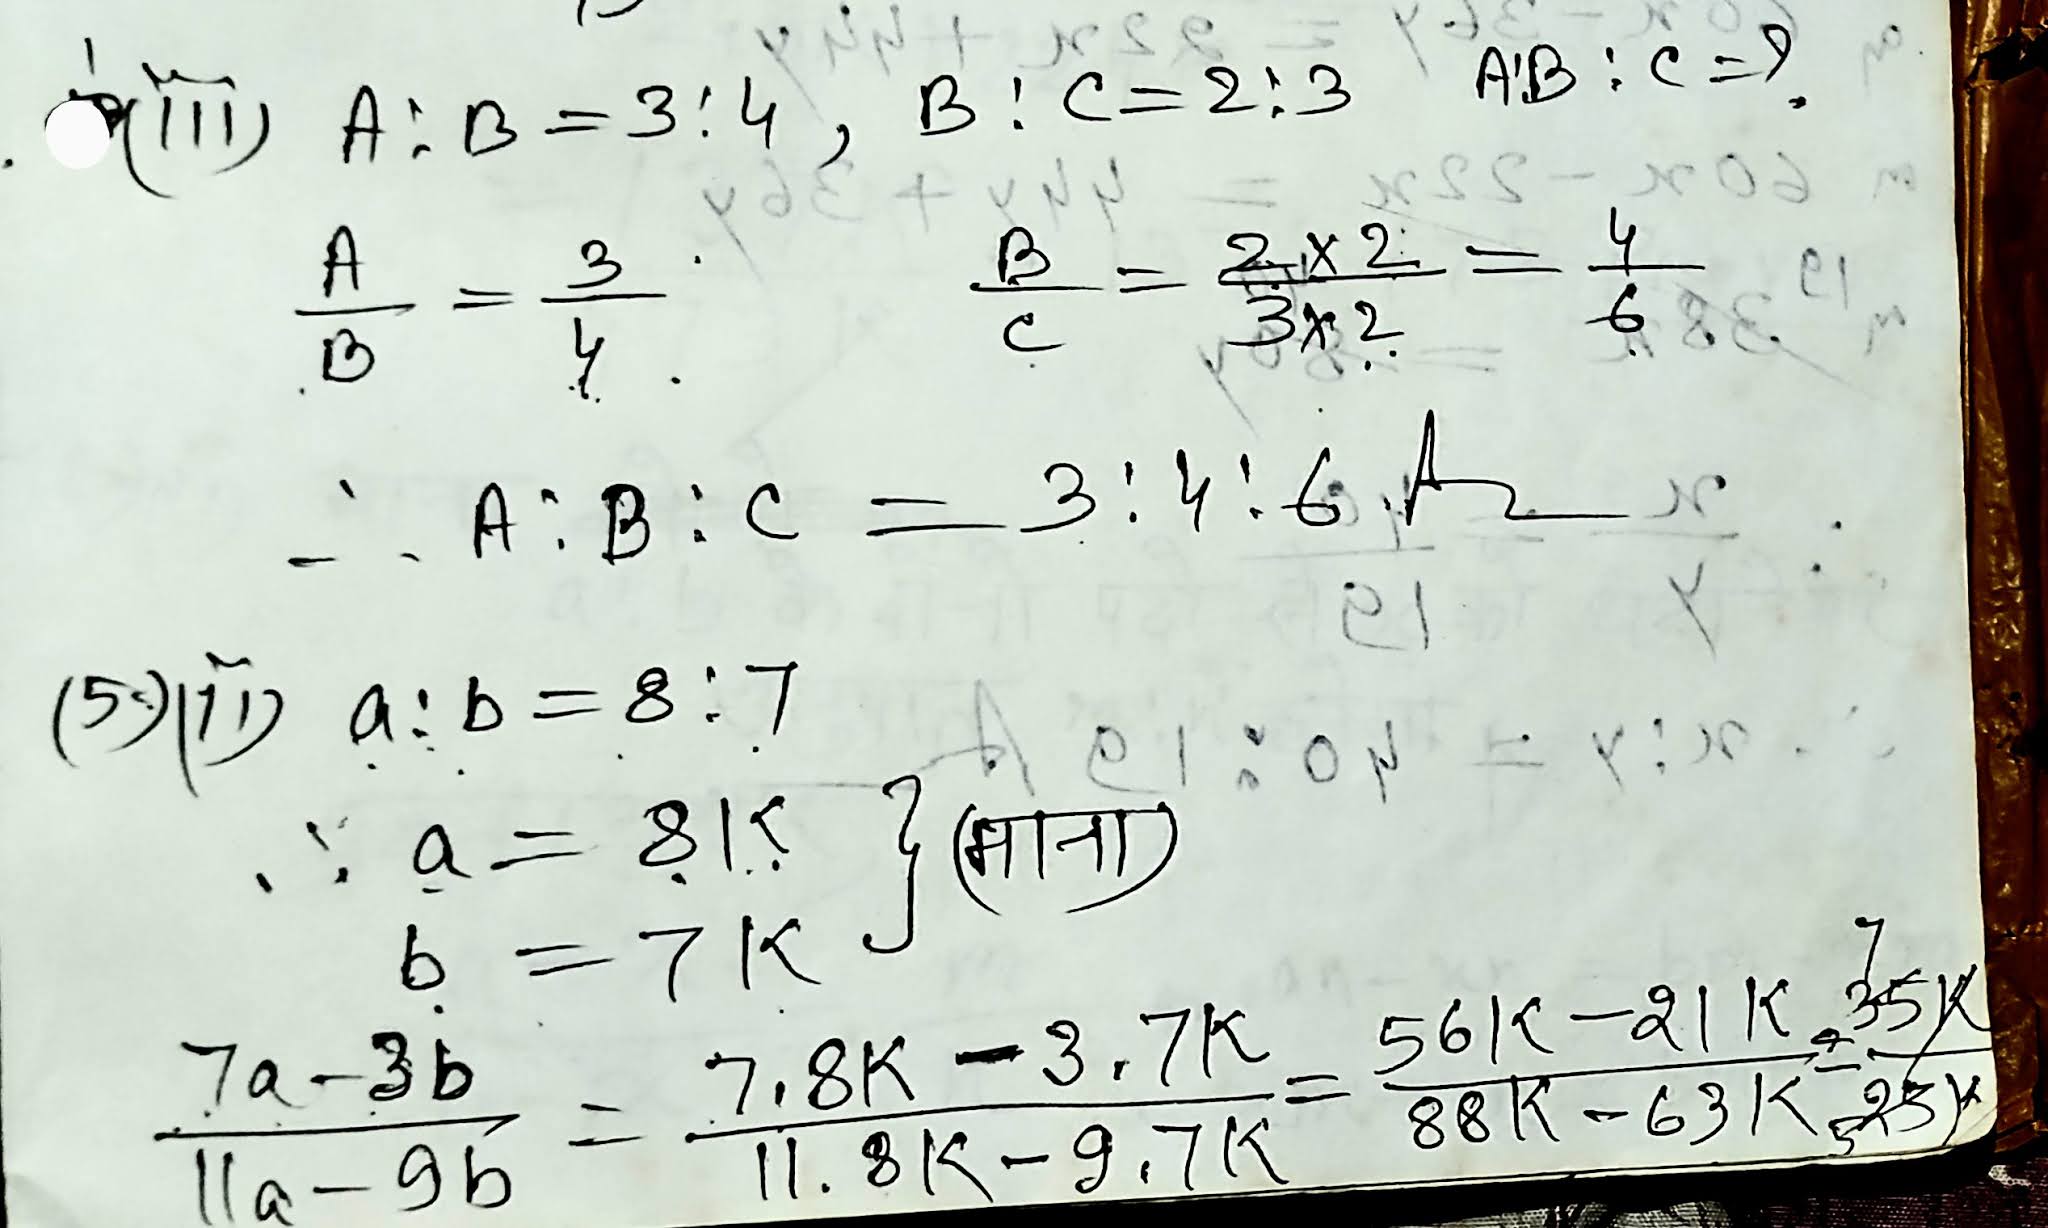 (iii) A : B = 3 : 4 , B : C = 2 : 3 A:B : C = ?
A/B = 3/4 B/C = 2×2/3×2 = 4/6
∴ A : B : C = 3 : 4 : 6 A
(5) (ii) a : b = 8 : 7
∵ a = 8K } (माना)
b = 7K
7a - 3b / 11a - 9b = 7.8K - 3.7K / 11.8K - 9.7K = 56K - 21K / 88K - 63K = 35K 7 / 25K 5